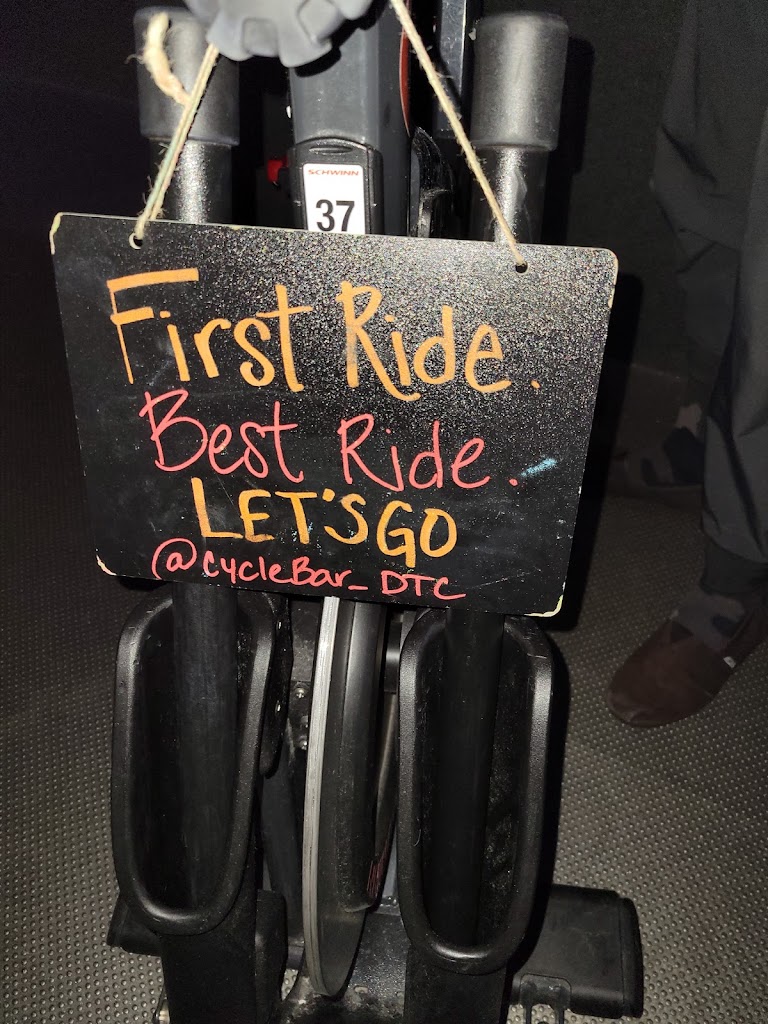 SCHWINN
37
First Ride.
Best Ride.
LET'S GO
@cycleBar_DTC